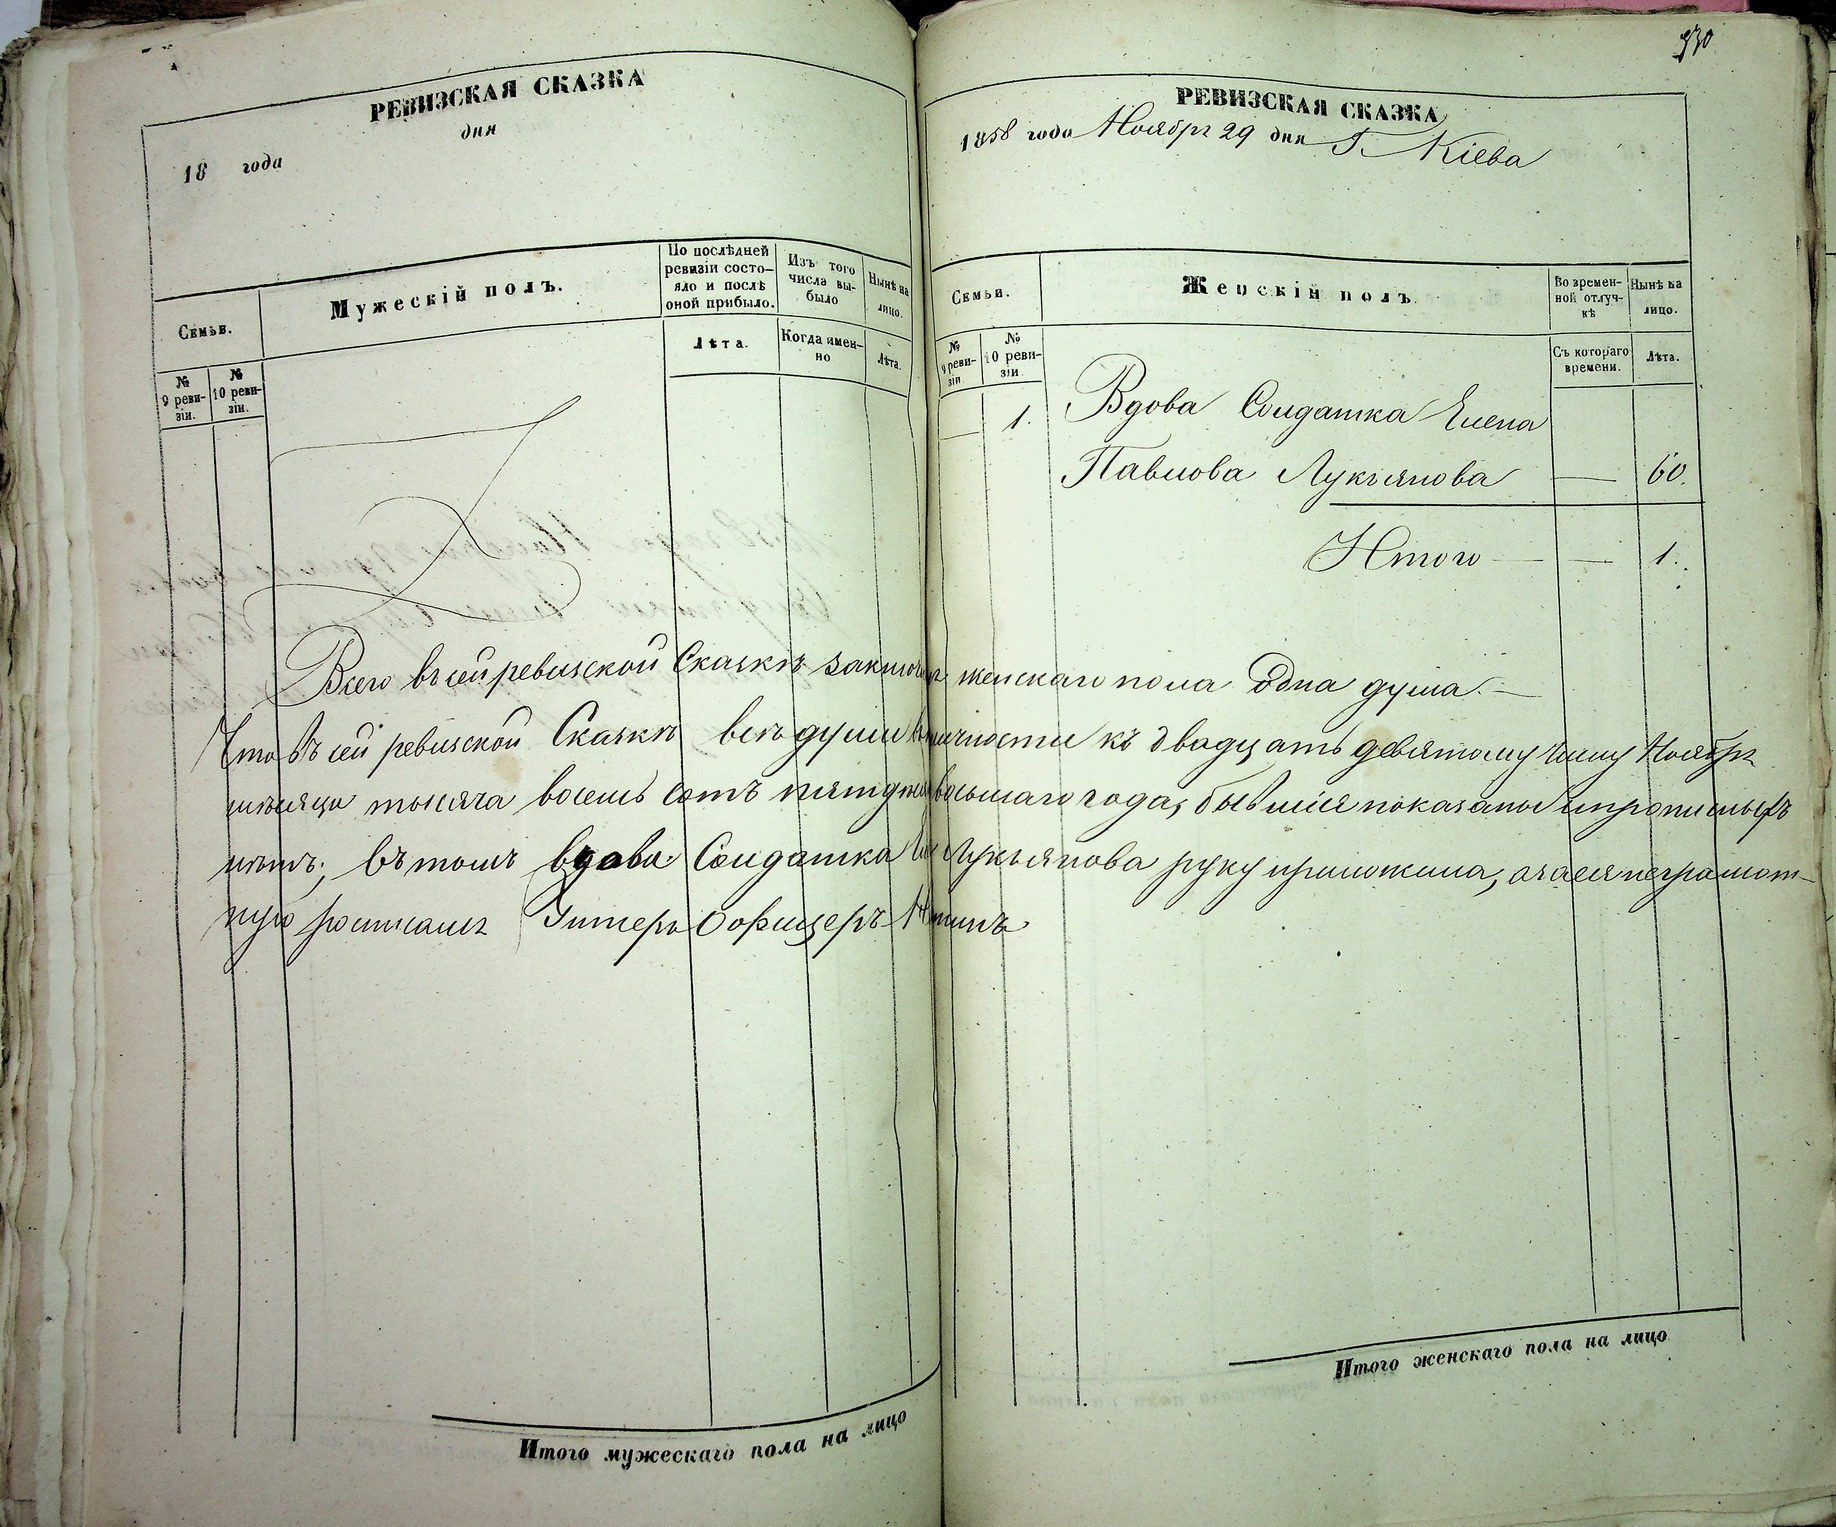 РЕВИЗСКАЯ СКАЗКА
18 года дня
Семьи.
Мужескій полъ.
По послѣдней ревизіи состояло и послѣ оной прибыло.
Изъ того числа выбыло
Нынѣ на лицо.
Лѣта.
Когда именно
Лѣта.
№ 9 ревизіи.
№ 10 ревизіи.
РЕВИЗСКАЯ СКАЗКА
1858 года Ноября 29 дня Г. Кіева
Семьи.
Женскій полъ.
Во временной отлучкѣ
Нынѣ на лицо.
№ 9 ревизіи
№ 10 ревизіи
Съ котораго времени.
Лѣта.
1. Вдова Солдатка Елена
Павлова Лукьянова — 60.
Итого — — 1.
Всего въ сей ревизской Сказкѣ женскаго пола Одна душа. —
Что въ сей ревизской Сказкѣ всѣ души въ личности къ двадцать девятому числу Ноября
мѣсяца тысяча восемь сотъ восьмаго года, бывшія показаны и прописныхъ
нѣтъ; въ томъ вдова Солдатка Лукьянова руку приложила, а за ея неграмот-
ную росписался Унтеръ Офицеръ
Итого мужескаго пола на лицо
Итого женскаго пола на лицо